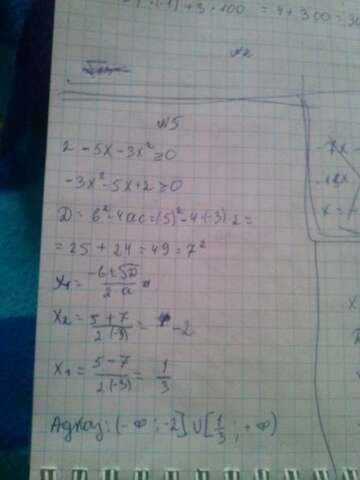 ·(-1)+3·100 = 4+300=30
№2
№5
2 - 5x - 3x² ≥ 0
-3x² - 5x + 2 ≥ 0
D = b² - 4ac = (-5)² - 4·(-3)·2 =
= 25 + 24 = 49 = 7²
x₁ = -b±√D / 2·a =
x₂ = 5+7 / 2·(-3) = -2
x₁ = 5-7 / 2·(-3) = 1/3
Адказ: (-∞; -2] ∪ [1/3; +∞)